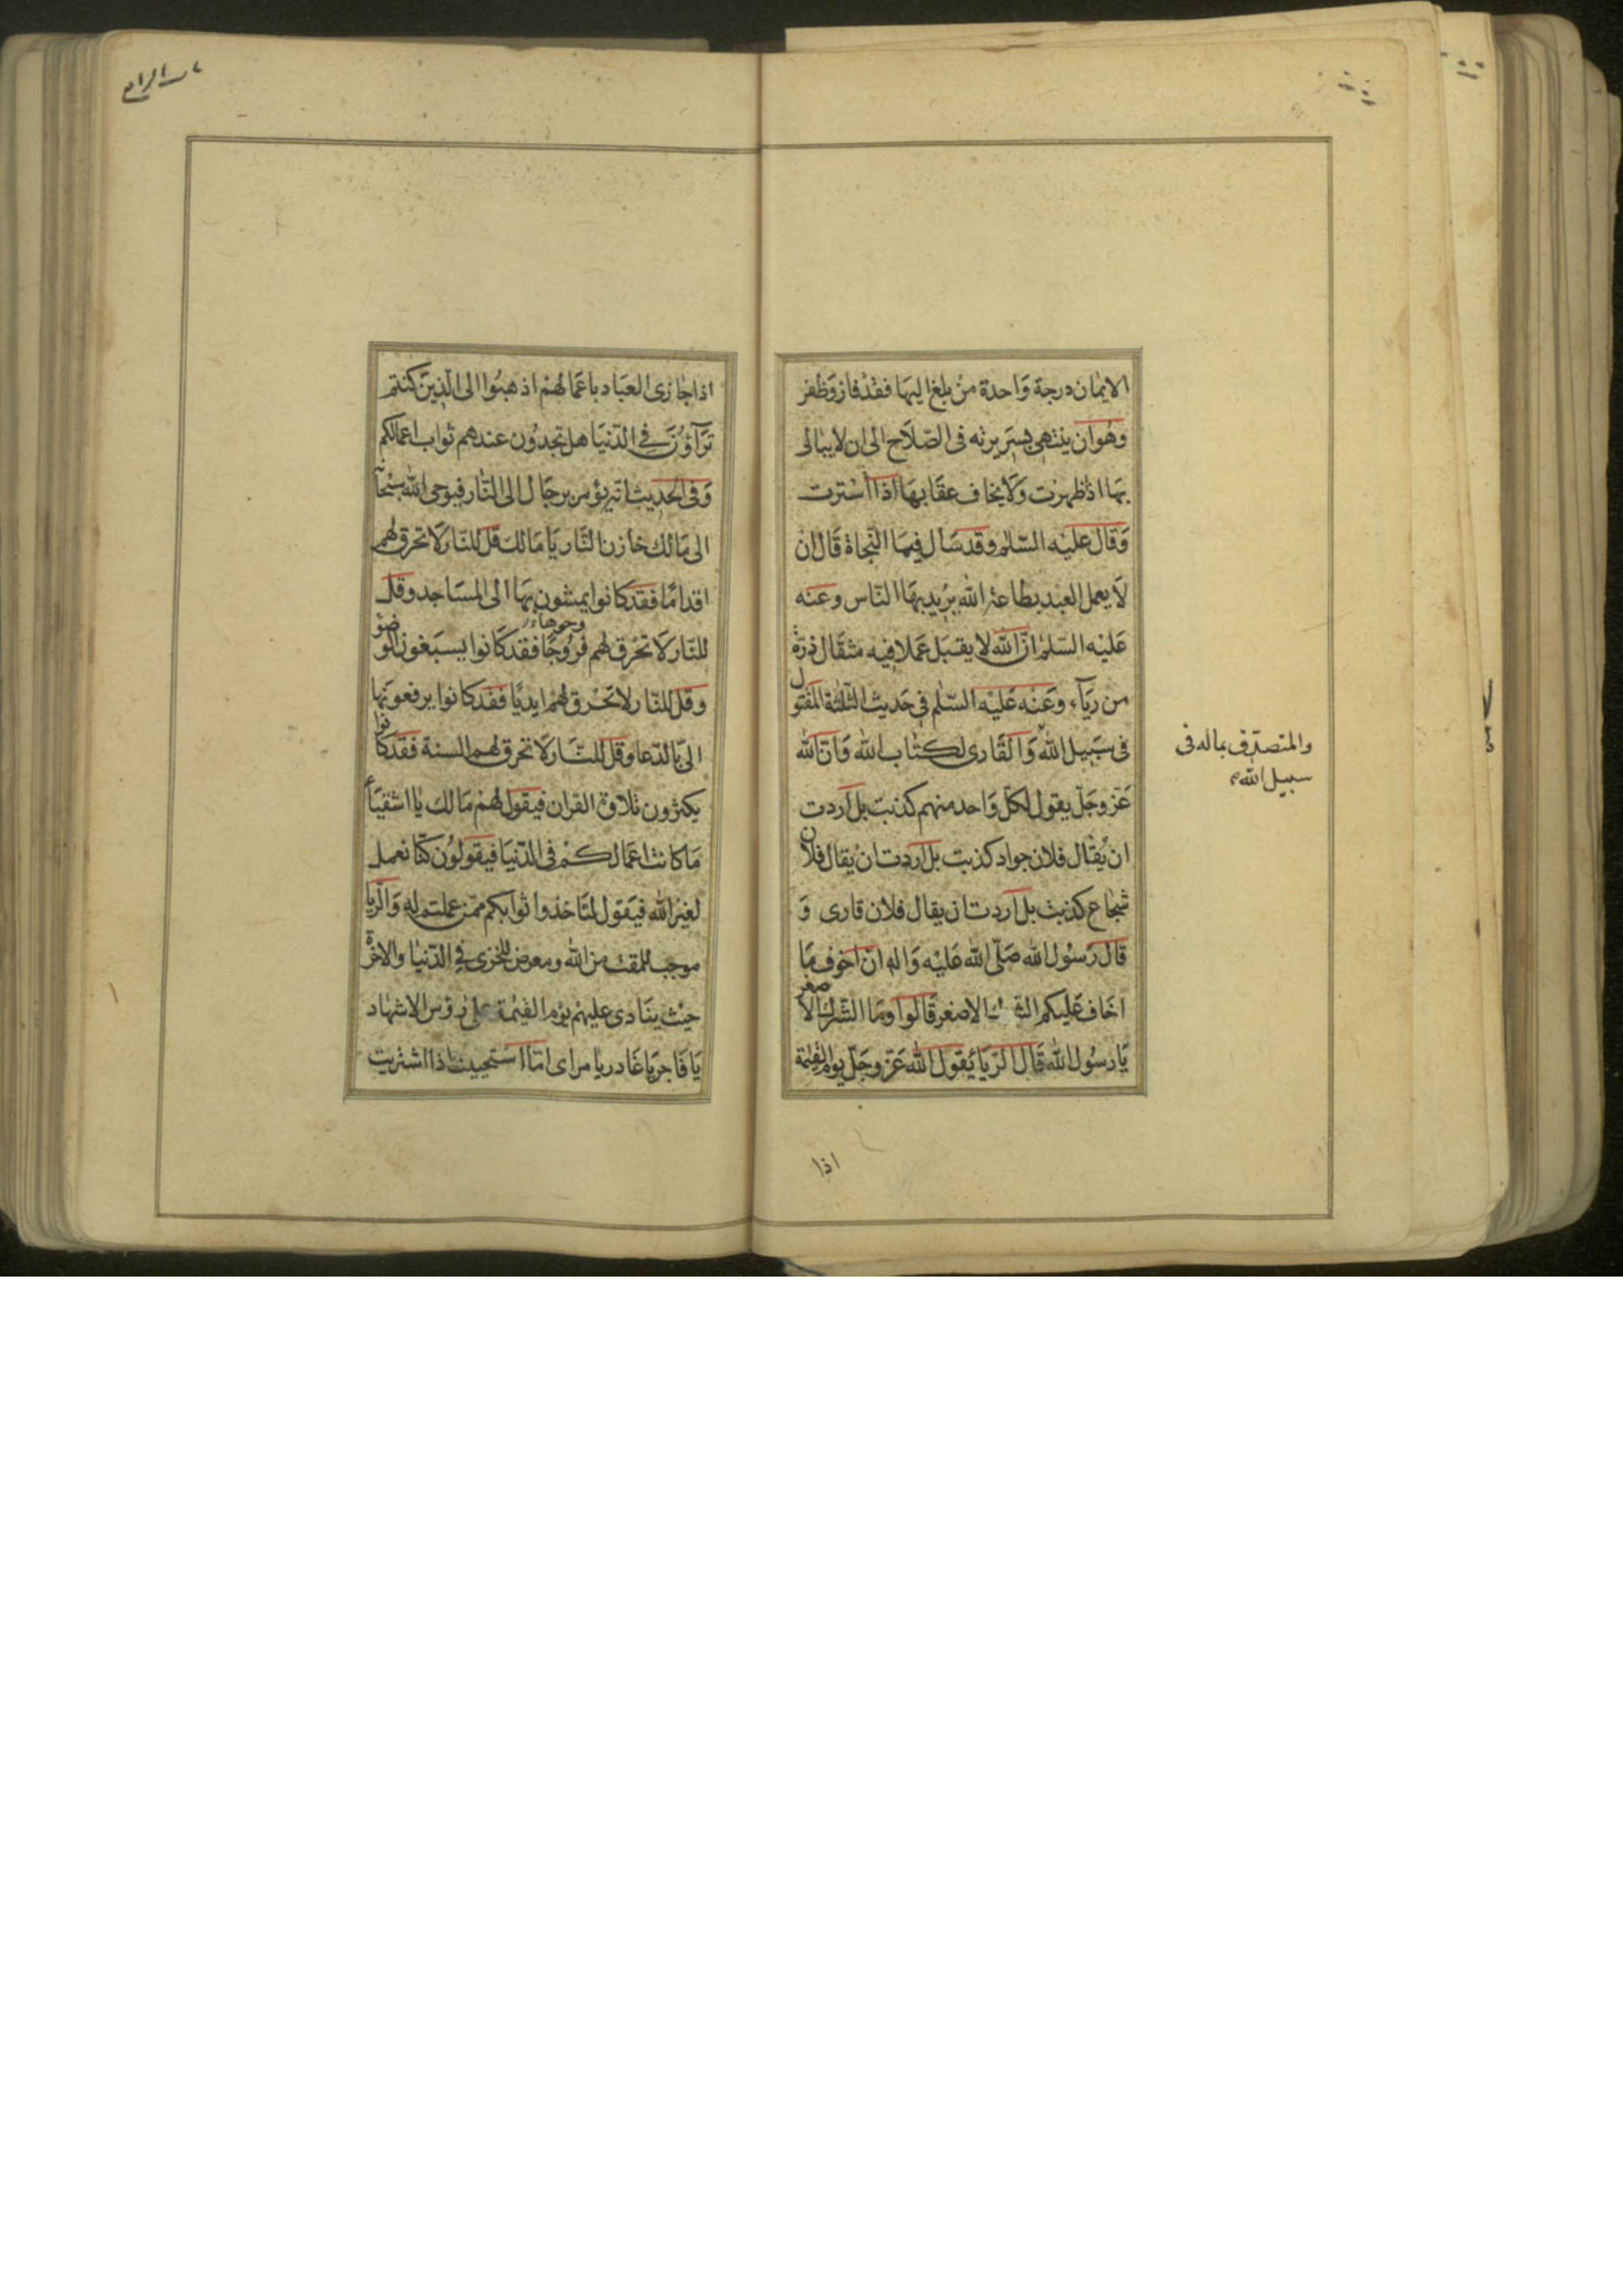 الايمان درجة وَاحدة منْ بلغ اليهَا فقدْ فاز وَظفر
وهُوَ ان ينتهى بسَريرته فى الصّلاَح الى ان لا يبالى
بهَا اذا ظهرت وَلَا يخاف عقابهَا اذا استرت
وَقال عليْه السّلم وقد سَأل فيمَا النّجاة قَال ان
لَا يعمل العبد بطاعة الله يريد بهَا النّاس وعنه
عَليْه السّلم انّ الله لا يقبَل عَملا فيه مثقال ذرّة
من ريَآء وعَنْه عَليْه السّلم فى حَديث الثّلثة المقتول
فى سَبيل الله وَالقَارى لكتاب الله وَانّ الله
والمتصدّق بماله فى
سبيل الله
عَزّ وجَلّ يقول لكلّ وَاحد منهم كذبت بل اردت
ان يُقال فلان جواد كذبت بل اردت ان يُقال فلان
شجَاع كذبت بل اردت ان يقال فلان قارى وَ
قال رَسُول الله صَلّى الله عَليْه وَاله انّ اخوف مَا
اخَاف عَليكم الاصغر قَالوا ومَا الشّرك الاصغر
يَا رسُول الله قَال الرّيَا يَقول الله عَزّ وجَلّ يوم القيٰمة
اذا
اذا جَازى العبَاد باعمَالهمْ اذهبُوا الى الّذينَ كنتم
تَرَآؤُنَ فى الدّنيَا هل تجدُون عندهم ثواب اعمالكم
وَفى الحَديث انّه يؤمر برجَال الى النّار فيوحى الله سبْحانه
الى مَالك خَازن النّار يَا مَالك قل للنّار لَا تحرق لهم
اقدامًا فقد كانوا يمشون بهَا الى المسَاجد وقل
للنّار لَا تحْرق لهم فرُوجًا فقد كَانوا يسبَغون الوضوْ
وجوها
وقل للنّار لا تحْرق لهمْ ايديًا فقد كانوا يرفعونهَا
الىّ بالدّعا وقل للنّار لَا تحرق لهم السنة فقد كانوا
يكثرون تلاوة القران فيقول لهمْ مَالك يٰا اشقيَآء
مَا كانت اعمَالكمْ فى الدّنيَا فيقولوُن كنّا نعمل
لغيْر الله فيَقول لتَاخذوا ثوابكم ممّن عملتم له وَالرّيا
موجب للمقت من الله ومعرض للخزى فى الدّنيٰا والاخرة
حيْث ينَادى عليهمْ يوْم القيٰمة على رؤس الاشهاد
يَا فَاجر يَا غَادر يا مراى امَا استحييت اذا اشتريت